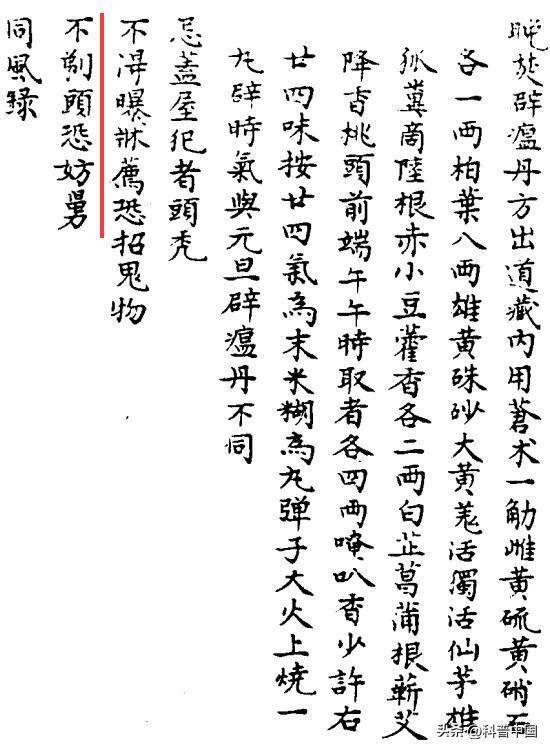 晚焚辟瘟丹方出道藏內用蒼朮一觔雌黃硫黃硝石
各一兩柏葉八兩雄黃硃砂大黃羗活獨活仙茅雄
狐糞商陸根赤小豆藿香各二兩白芷菖蒲根蘄艾
降香桃頭前端午午時取者各四兩唵叭香少許右
廿四味按廿四氣為末米糊為丸彈子大火上燒一
丸辟時氣與元旦辟瘟丹不同
忌蓋屋犯者頭禿
不淂曝牀薦恐招鬼物
不剃頭恐妨舅
同風錄
头条 @科普中国